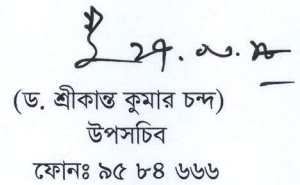 (ড. শ্রীকান্ত কুমার চন্দ)
উপসচিব
ফোনঃ ৯৫ ৮৪ ৬৬৬